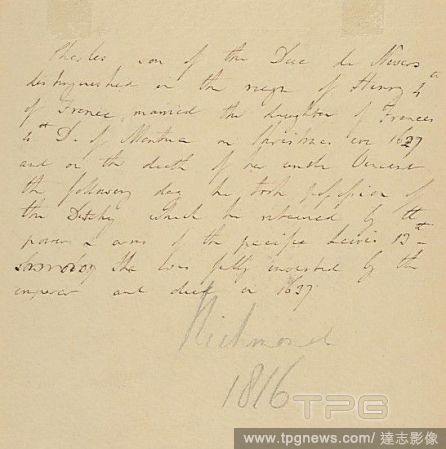 Charles, son of the Duc de Nevers
distinguished in the reign of Henry 4th
of France, married the daughter of Frances
4th D. of Mantua on Christmas eve 1627
and on the death of her uncle Vincent
the following day he took possession of
the Dutchy which he retained by the
power & arms of the pacific Lewis 13th
he was fully invested by the
emperor and died in 1637.
Richmond
1816
TPG
www.tpgnews.com/ 達志影像